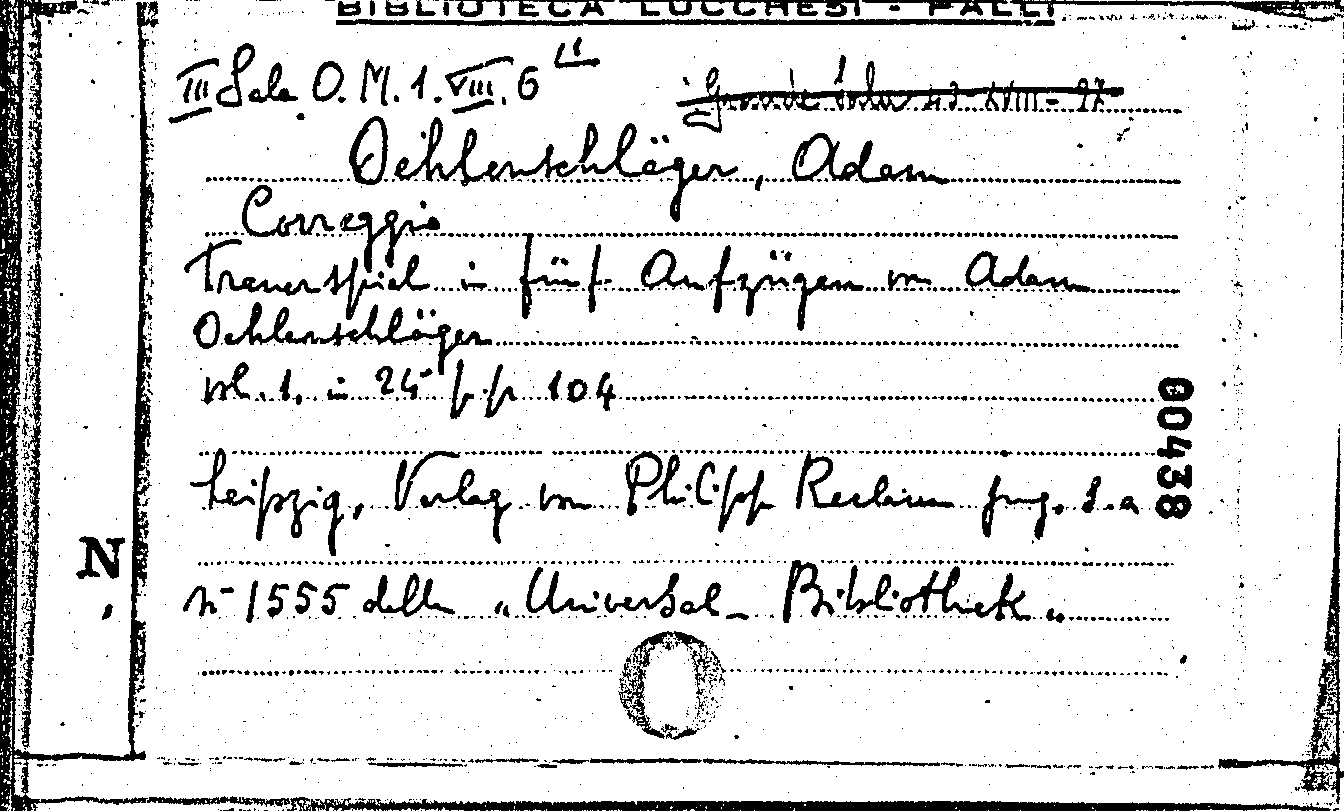 BIBLIOTECA LUCCHESI - PALLI
III Sala O. M. 1. VIII. 6 11
Grande Sala 43-XVIII-27
Oehlenschläger, Adam
Correggio
Trauerspiel in fünf Aufzügen von Adam
Oehlenschläger
vol. 1. in 24° pp. 104
Leipzig, Verlag von Philipp Reclam jung. s.a
n° 1555 della „Universal- Bibliothek„
00438
N